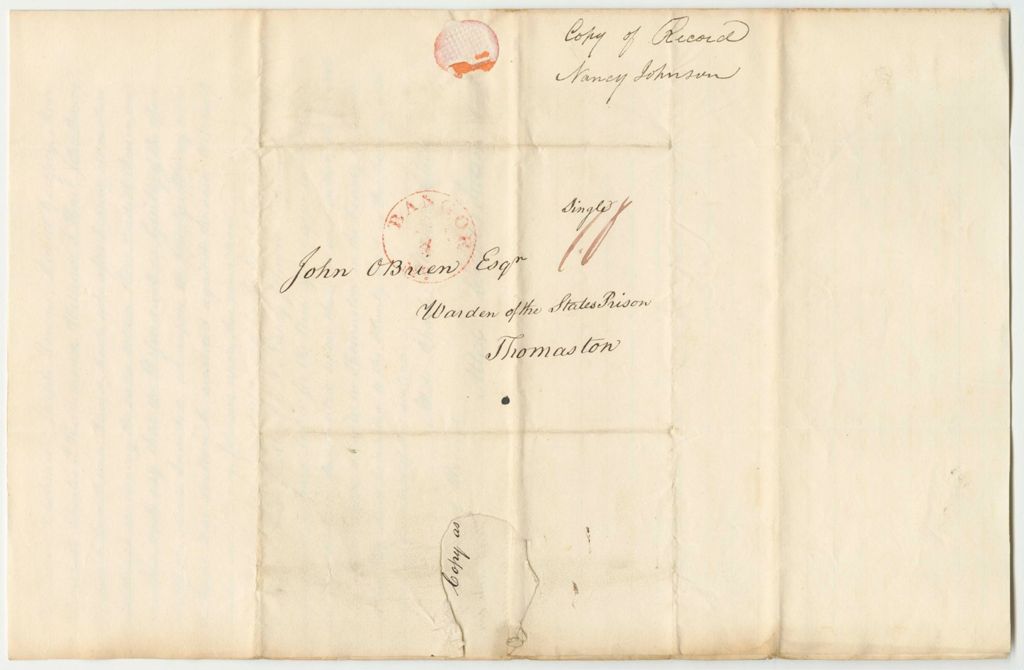 Copy of Record
Nancy Johnson
BANGOR
Single
John OBrien Esqr
Warden of the States Prison
Thomaston
Copy as